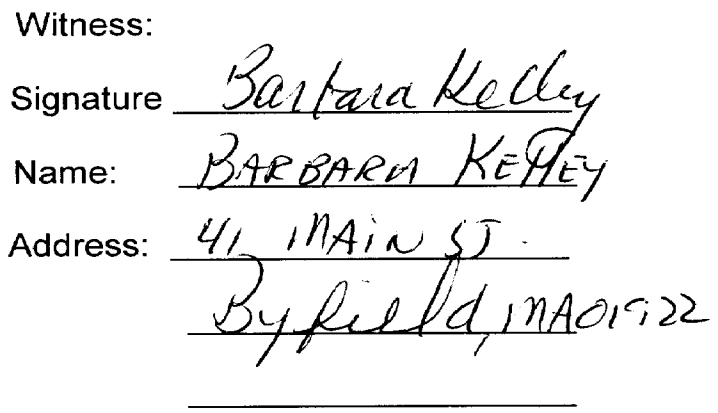 Witness:
Signature Barbara Kelley
Name: BARBARA KELLEY
Address: 41 MAIN ST.
Byfield, MA 01922